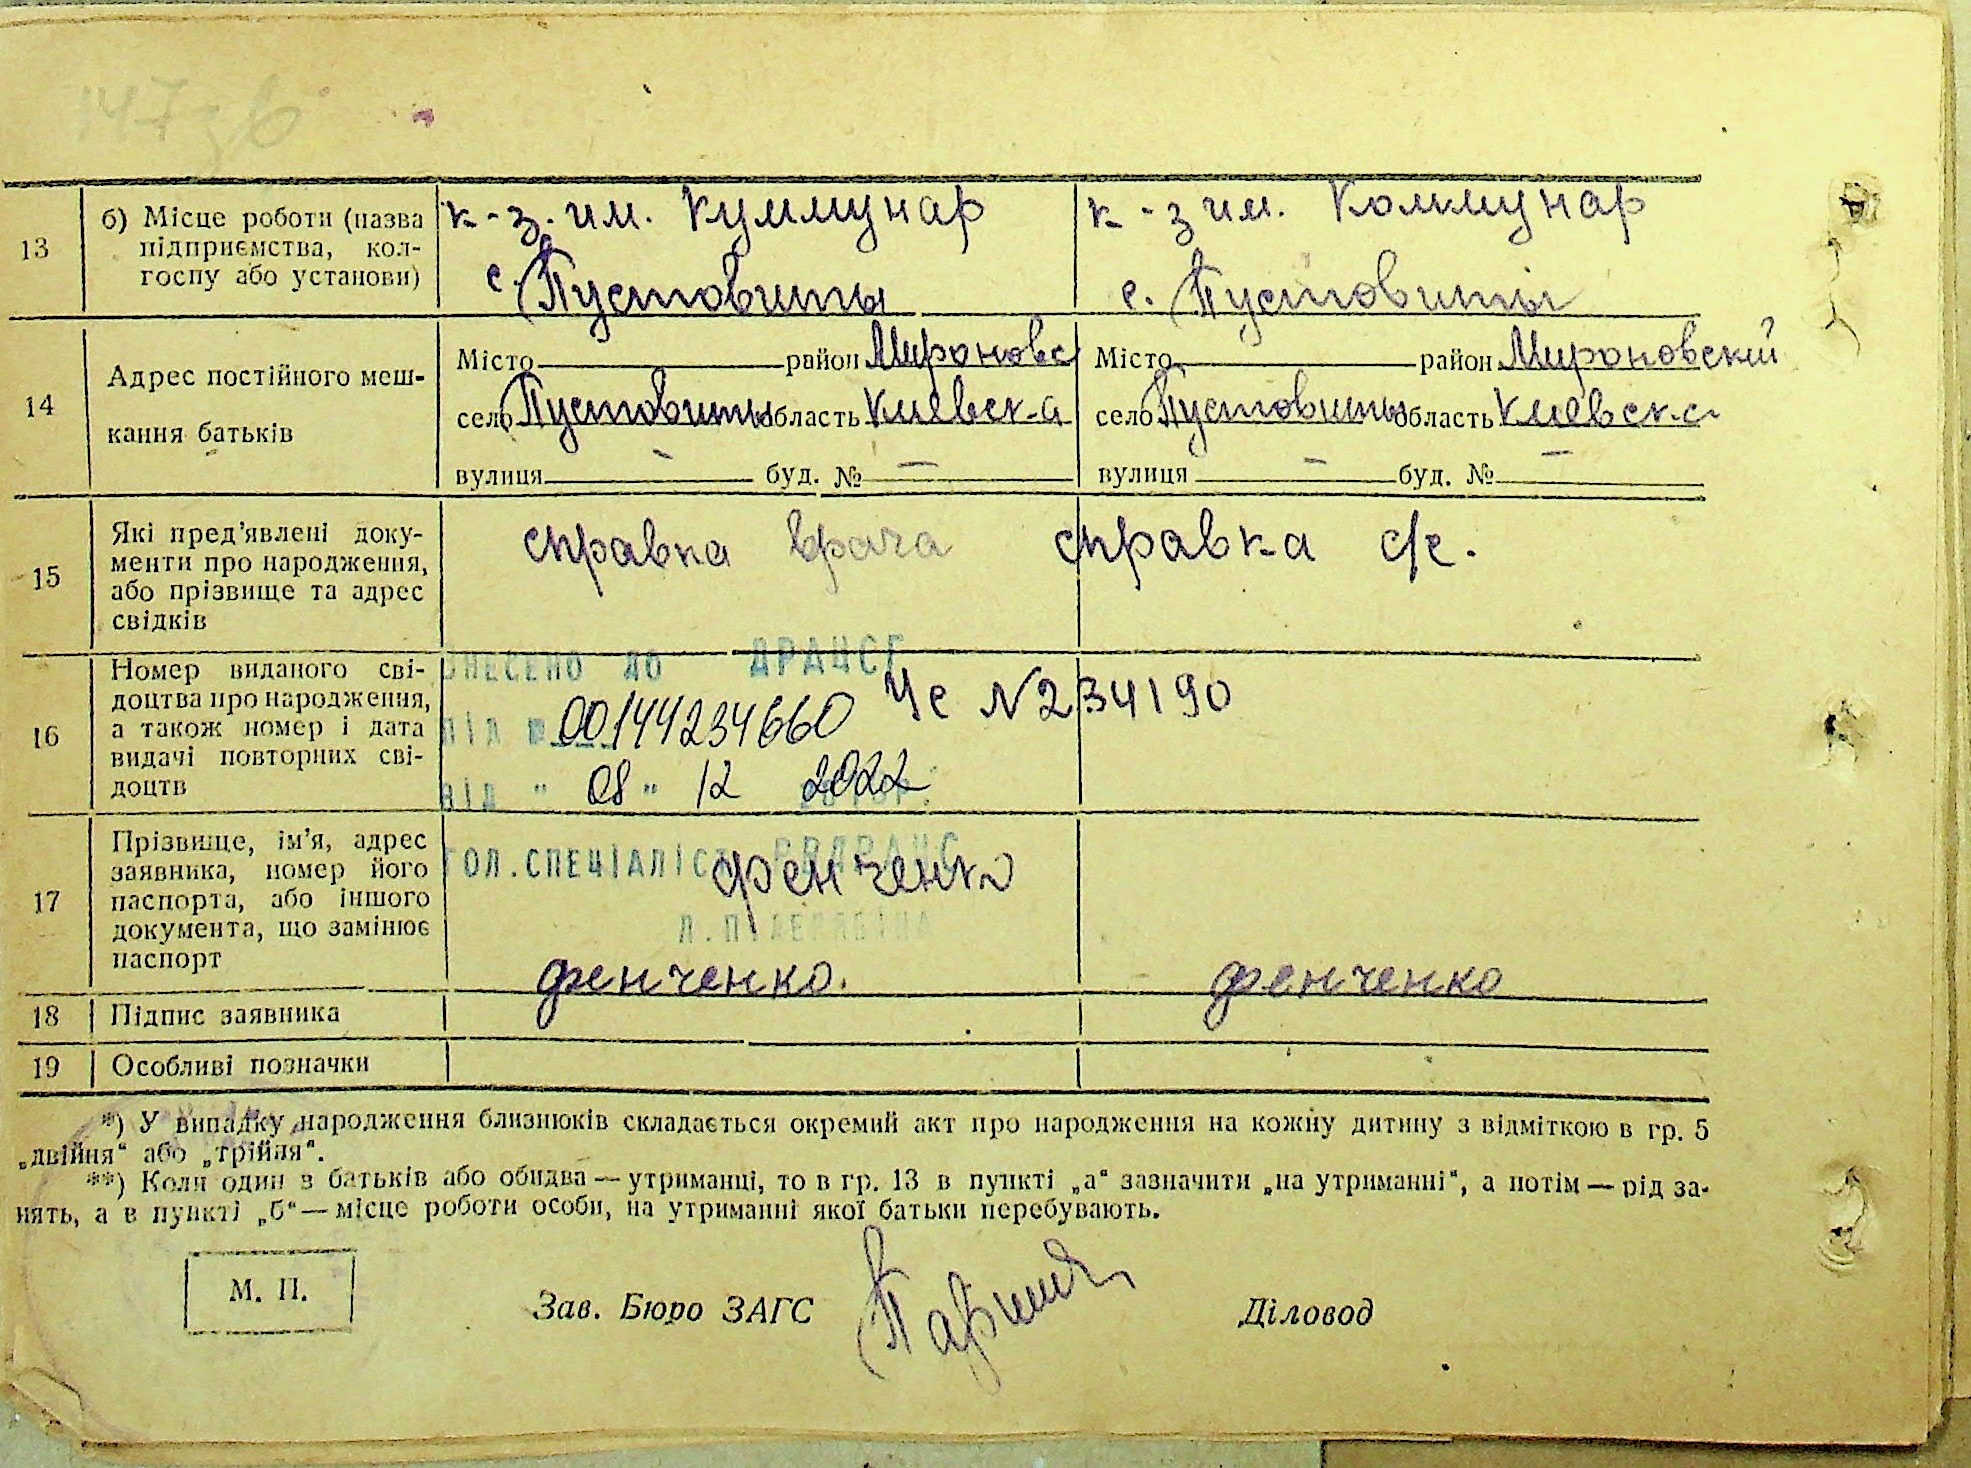 147зв
13
б) Місце роботи (назва
підприємства, кол-
госпу або установи)
к-з. им. Куммунар
с. Пустовиты
к-з им. Коммунар
с. Пустовиты
14
Адрес постійного меш-
кання батьків
Місто район Мироновс
село Пустовиты область Киевск-а
вулиця – буд. № –
Місто район Мироновский
село Пустовиты область Киевск-а
вулиця – буд. № –
15
Які пред’явлені доку-
менти про народження,
або прізвище та адрес
свідків
справка врача справка с/с.
16
Номер виданого сві-
доцтва про народження,
а також номер і дата
видачі повторних сві-
доцтв
ВНЕСЕНО ДО ДРАЦСГ
ПІД № 00144234660
ВІД " 08 " 12 2022
Че N234190
17
Прізвище, ім’я, адрес
заявника, номер його
паспорта, або іншого
документа, що замінює
паспорт
ГОЛ.СПЕЦІАЛІСТ
Фенченко
Фенченко.
Фенченко
18
Підпис заявника
19
Особливі позначки
*) У випадку народження близнюків складається окремий акт про народження на кожну дитину з відміткою в гр. 5
„двійня“ або „трійня“.
**) Коли один з батьків або обидва — утриманці, то в гр. 13 в пункті „а“ зазначити „на утриманні“, а потім — рід за-
нять, а в пункті „б“ — місце роботи особи, на утриманні якої батьки перебувають.
М. П.
Зав. Бюро ЗАГС
Діловод